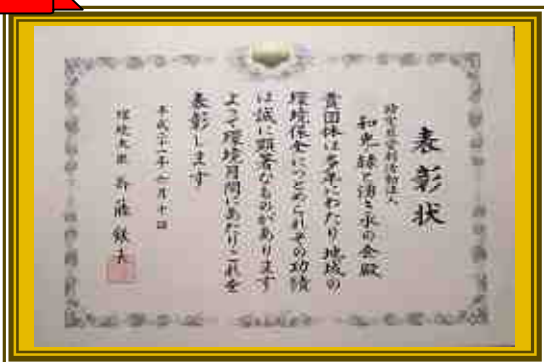 表彰状
特定非営利活動法人
和光緑と湧き水の会殿
貴団体は多年にわたり地域の
環境保全につとめられその功績
は誠に顕著なものがあります
よって環境月間にあたりこれを
表彰します
平成二十一年六月十日
環境大臣 斉藤鉄夫